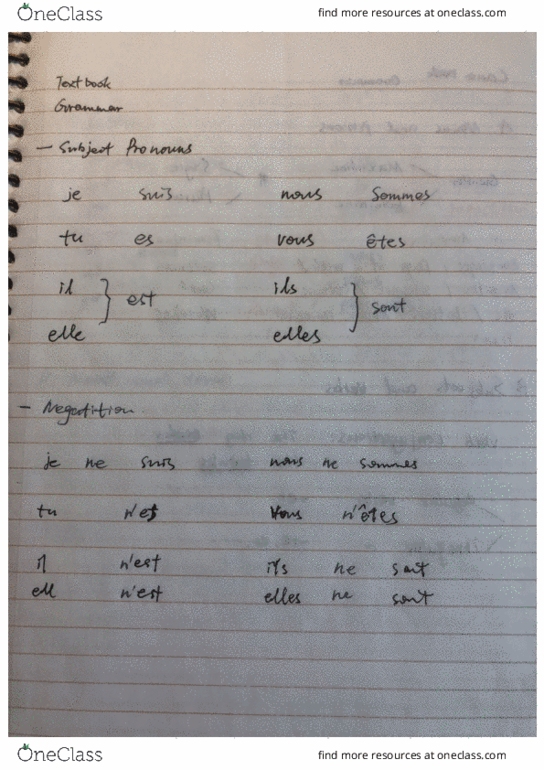 OneClass find more resources at oneclass.com
Textbook
Grammar
- Subject Pronouns
je suis nous sommes
tu es vous êtes
il ils
} est } sont
elle elles
- Negatition
je ne suis nous ne sommes
tu n'es vous n'êtes
il n'est ils ne sont
ell n'est elles ne sont
OneClass find more resources at oneclass.com